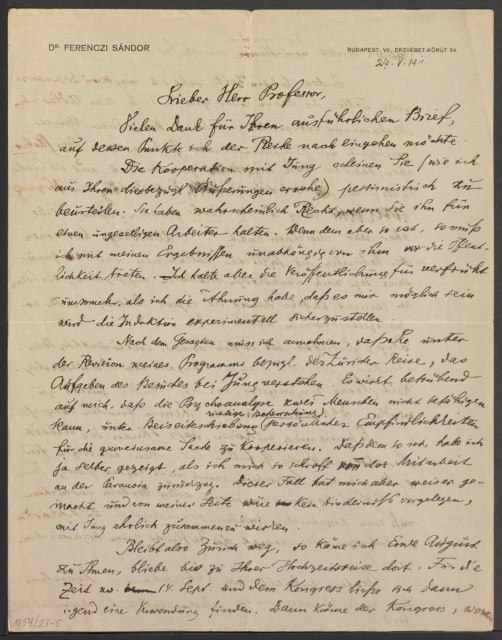 Dr. FERENCZI SÁNDOR
BUDAPEST, VII, ERZSÉBET-KÖRÚT 54.
27. V. 1911
Lieber Herr Professor,
Vielen Dank für Ihren ausführlichen Brief,
auf dessen Punkte ich der Reihe nach eingehen möchte.
Die Kooperation mit Jung scheinen Sie (wie ich
aus Ihren diesbezügl. Äußerungen ersehe) pessimistisch zu
beurteilen. Sie haben wahrscheinlich Recht, wenn Sie ihn für
einen ungeselligen Arbeiter halten. Wenn dem aber so ist, so muß
ich mit meinen Ergebnissen unabhängig von ihm vor die Öffent-
lichkeit treten. Ich halte aber die Veröffentlichung für verfrüht
umsomehr, als ich die Ahnung habe, daß es mir möglich sein
wird die Induktion experimentell sicherzustellen
Nach dem Gesagten muss ich annehmen, daß Sie unter
der Revision meines Programms bezügl. der Züricher Reise, das
Aufgeben des Besuches bei Jung verstehen. Es wirkt betrübend
auf mich, daß die Psychoanalyse zwei Menschen nicht befähigen
kann, unter Beiseiteschiebung persönlicher Empfindlichkeiten
für die gemeinsame Sache zu kooperieren. Daß dem so ist, habe ich
ja selber gezeigt, als ich mich so schroff von der Mitarbeit
an der Paranoia zurückzog. Dieser Fall hat mich aber weiser ge-
macht und von meiner Seite wäre kein Hindernis vorgelegen,
mit Jung ehrlich zusammen zu wirken.
Bleibt also Zürich weg, so käme ich Ende August
zu Ihnen, bliebe bis zu Ihrer Hochzeitsreise dort. Für die
Zeit zw. 14. Sept. und dem Kongress ließe sich dann
irgend eine Verwendung finden. Dann käme der Kongress,
1054/23-5